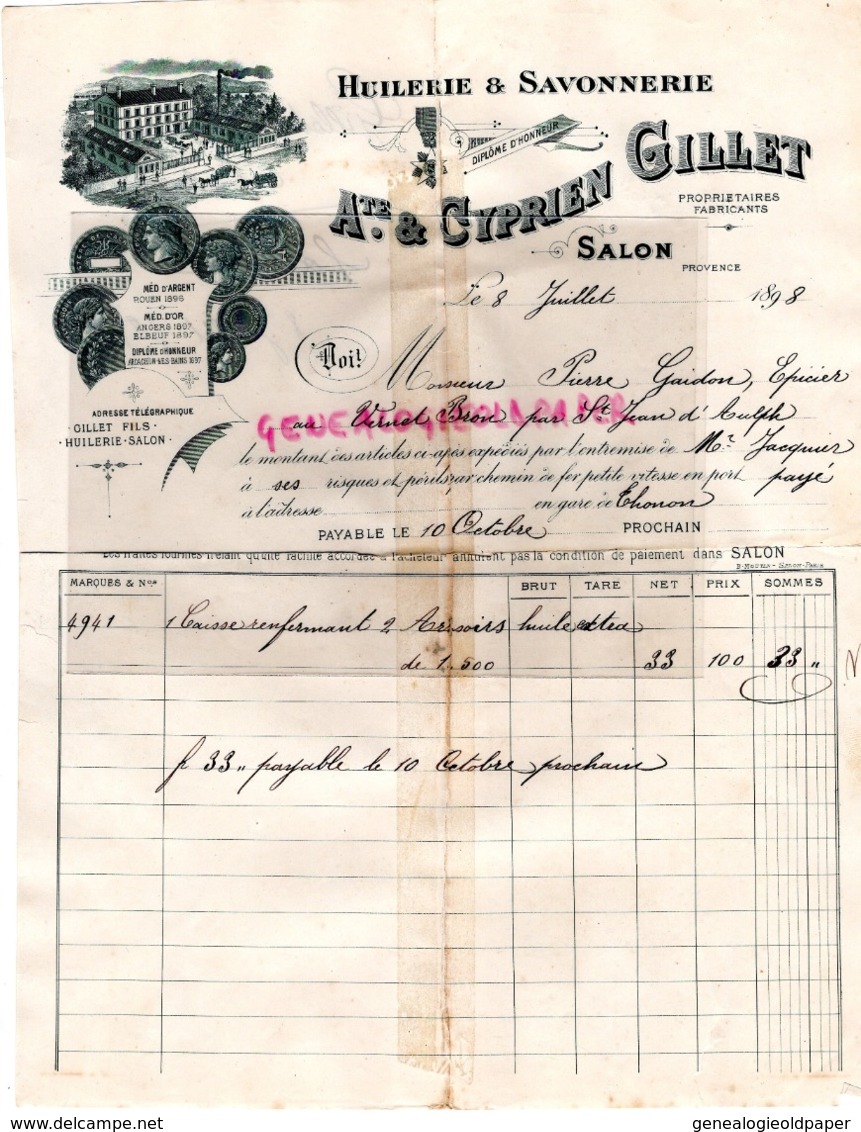 HUILERIE & SAVONNERIE
DIPLÔME D'HONNEUR
ATE. & CYPRIEN GILLET
PROPRIETAIRES
FABRICANTS
SALON
PROVENCE
MÉD D'ARGENT
ROUEN 1896
MÉD. D'OR
ANGERS 1897
ELBEUF 1897
DIPLÔME D'HONNEUR
Le 8 Juillet 1898
Doit
ADRESSE TÉLÉGRAPHIQUE
GILLET FILS
HUILERIE-SALON
Monsieur Pierre Gaidon, Epicier
au Vernet Bron par St Jean d'Aulph
GENEALOGIEOLDPAPER
le montant des articles ci-après expédiés par l'entremise de Mr. Jacquier
à ses risques et périls par chemin de fer petite vitesse en port payé
à l'adresse en gare de Thonon
PAYABLE LE 10 Octobre PROCHAIN
Les traites fournies n'étant qu'une facilité accordée à l'acheteur annulent pas la condition de paiement dans SALON
MARQUES & Nos BRUT TARE NET PRIX SOMMES
4941 1 Caisse renfermant 2 Arrosoirs huile extra
de 1.500 33 100 33 "
f 33 " payable le 10 Octobre prochain
delcampe.net
genealogieoldpaper